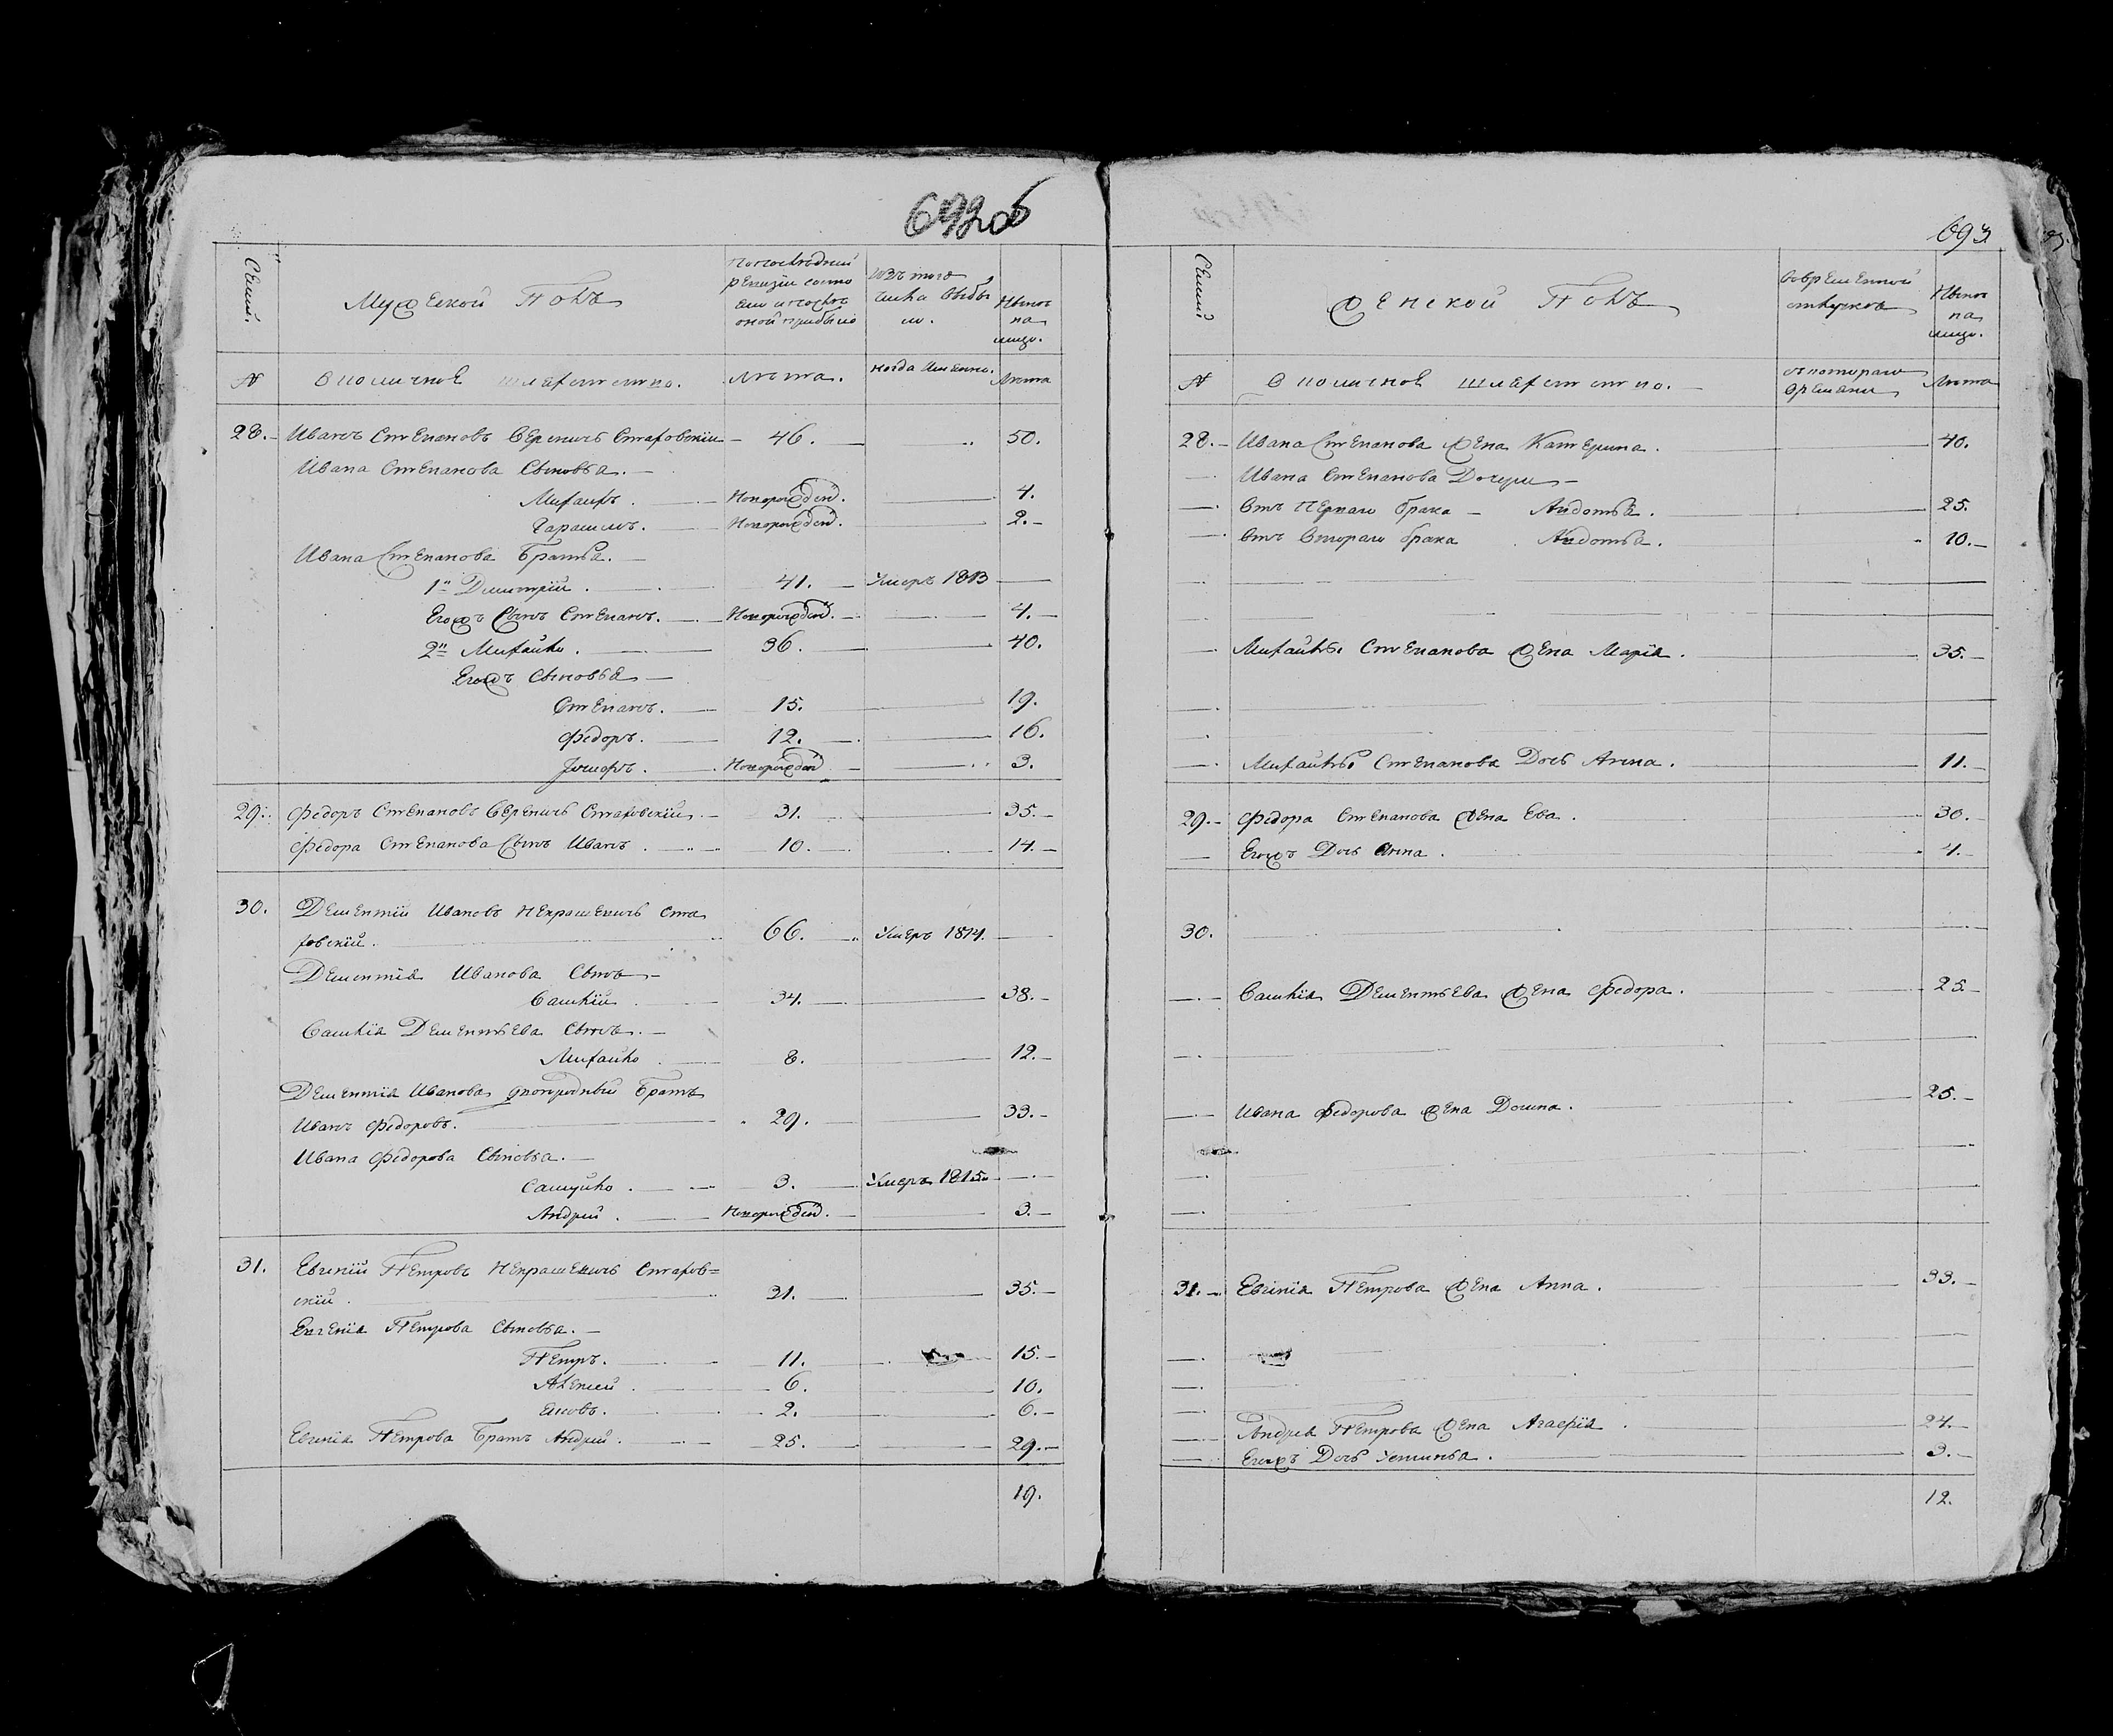 692об
Семьи.
Мужеской Полъ
По последней
ревизіи состо
яли и после
оной прибыло
Изъ того
числа выбы
ло.
Ныне
на
лицо.
N
Околичное шляхетство.
Лета.
когда именно.
Лета
28. Иванъ Степановъ Вереничъ Стаховскій 46. 50.
Ивана Степанова Сыновья.
Михаилъ. Новорожден. 4.
Новорожден. 2.
Ивана Степанова Братья.
1й Дмитрій. 41. Умеръ 1813
Егожъ Сынъ Степанъ. Новорожден. 4.
2й Михайло. 36. 40.
Егожъ Сыновья
Степанъ. 15. 19.
Федоръ. 12. 16.
Новорожден 3.
29. Федоръ Степановъ Вереничъ Стаховскій. 31. 35.
Федора Степанова Сынъ Иванъ. 10. 14.
30. Дементій Ивановъ Некрашевичъ Ста
ховскій. 66. Умеръ 1814.
Дементія Иванова Сынъ
Самкій 34. 38.
Самкія Дементьева Сынъ.
Михайло 8. 12.
Дементія Иванова двоюродный Братъ
Иванъ Федоровъ. 29. 33.
Ивана Федорова Сыновья.
Самуйло. 3. Умеръ 1815
Андрей. Новорожден. 3.
31. Евгеній Петровъ Некрашевичъ Стахов=
скій. 31. 35.
Евгенія Петрова Сыновья.
Петръ. 11. 15.
Алексей 6. 10.
Яковъ. 2. 6.
Евгенія Петрова Братъ Андрей. 25. 29.
19.
693
Семьи
Женской Полъ
Во временной
отлучке
Ныне
на
лицо.
N
Околичное шляхетство.
съ котораго
времени
Лета
28. Ивана Степанова Жена Катерина. 40.
Ивана Степанова Дочери
Отъ Перваго брака Авдотья. 25.
Отъ Втораго брака Авдотья. 10.
Михайлы Степанова Жена Марія. 35.
Михайлы Степанова Дочь Анна. 11.
29. Федора Степанова Жена Ева. 30.
Егожъ Дочь Анна. 4.
30.
Самкія Дементьева Жена Федора. 25
Ивана Федорова Жена Домна. 25.
31. Евгенія Петрова Жена Анна. 33.
Андрея Петрова Жена Агафія. 24.
Егожъ Дочь Устинья. 3.
12.